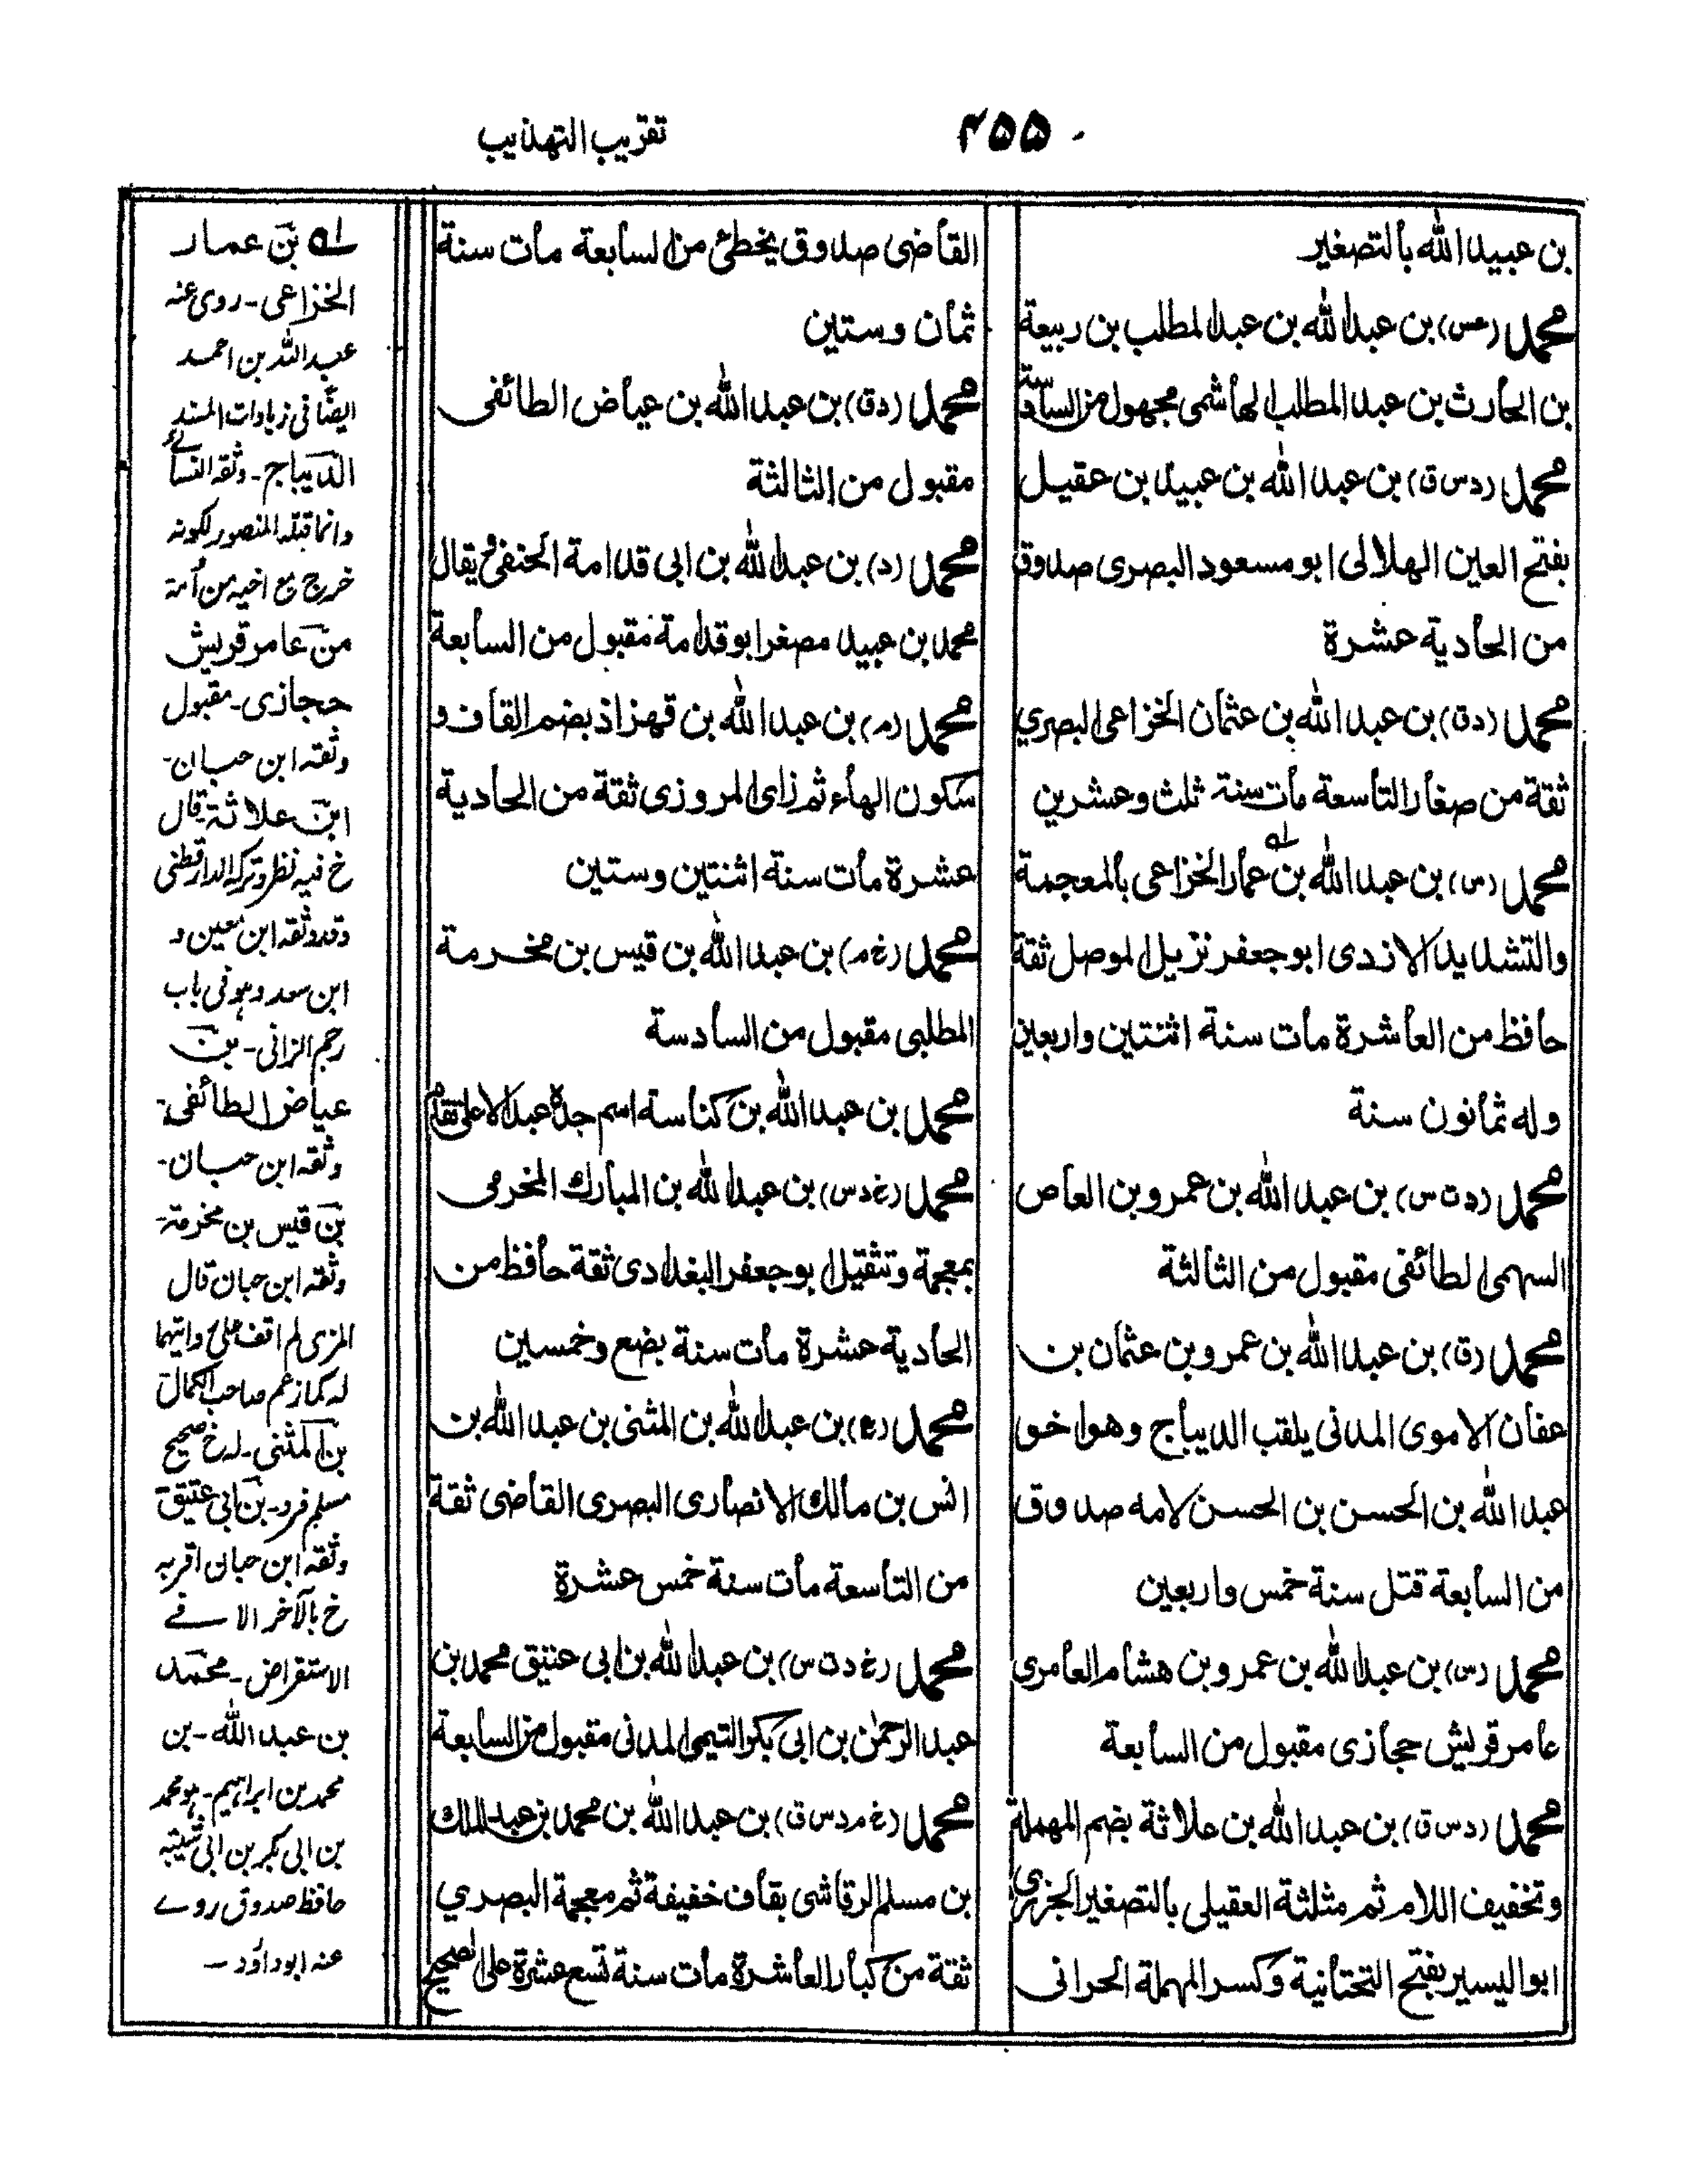 ٤٥٥
تقريب التهذيب
بن عبيد الله بالتصغير
محمد (عس) بن عبد الله بن عبد المطلب بن ربيعة
بن الحارث بن عبد المطلب الهاشمى مجهول من السادسة
محمد (د س ق) بن عبد الله بن عبيد بن عقيل
بفتح العين الهلالى ابو مسعود البصرى صدوق
من الحادية عشرة
محمد (د ق) بن عبد الله بن عثمان الخزاعى البصري
ثقة من صغار التاسعة مات سنة ثلث وعشرين
محمد (س) بن عبد الله بن عمار الخزاعى بالمعجمة
والتشديد الازدى ابو جعفر نزيل الموصل ثقة
حافظ من العاشرة مات سنة اثنتين واربعين
وله ثمانون سنة
محمد (د ت س) بن عبد الله بن عمرو بن العاص
السهمى الطائفى مقبول من الثالثة
محمد (ق) بن عبد الله بن عمرو بن عثمان بن
عفان الاموى المدنى يلقب الديباج وهو اخو
عبد الله بن الحسن بن الحسن لامه صدوق
من السابعة قتل سنة خمس واربعين
محمد (س) بن عبد الله بن عمرو بن هشام العامرى
عامر قريش حجازى مقبول من السابعة
محمد (د س ق) بن عبد الله بن علاثة بضم المهملة
وتخفيف اللام ثم مثلثة العقيلى بالتصغير الجزرى
ابو اليسير بفتح التحتانية وكسر المهملة الحرانى
القاضى صدوق يخطئ من السابعة مات سنة
ثمان وستين
محمد (د ق) بن عبد الله بن عياض الطائفى
مقبول من الثالثة
محمد (د) بن عبد الله بن ابى قدامة الحنفى ويقال
محمد بن عبيد مصغر ابو قدامة مقبول من السابعة
محمد (م) بن عبد الله بن قهزاذ بضم القاف و
سكون الهاء ثم زاى المروزى ثقة من الحادية
عشرة مات سنة اثنتين وستين
محمد (خ م) بن عبد الله بن قيس بن مخرمة
المطلبى مقبول من السادسة
محمد بن عبد الله بن كناسة اسم جده عبد الاعلى تقدم
محمد (خ د س) بن عبد الله بن المبارك المخرمى
بمعجمة وتثقيل ابو جعفر البغدادى ثقة حافظ من
الحادية عشرة مات سنة بضع وخمسين
محمد (ع) بن عبد الله بن المثنى بن عبد الله بن
انس بن مالك الانصارى البصرى القاضى ثقة
من التاسعة مات سنة خمس عشرة
محمد (خ د ت س) بن عبد الله بن ابى عتيق محمد بن
عبد الرحمن بن ابى بكر التيمى المدنى مقبول من السابعة
محمد (خ م د س ق) بن عبد الله بن محمد بن عبد الملك
بن مسلم الرقاشى بقاف خفيفة ثم معجمة البصري
ثقة من كبار العاشرة مات سنة تسع عشرة على الصحيح
له بن عمار
الخزاعى - روى عنه
عبد الله بن احمد
ايضا فى زيادات المسند
الديباج - وثقه النسائى
وانما قتله المنصور لكونه
خرج مع اخيه من امه
من عامر قريش
حجازى - مقبول
وثقه ابن حبان -
ابن علاثة قال
خ فيه نظر وتركه الدارقطنى
وقد وثقه ابن معين و
ابن سعد وهو فى باب
رجم الزانى - بن
عياض الطائفى -
وثقه ابن حبان -
بن قيس بن مخرمة -
وثقه ابن حبان قال
المزى لم اقف على روايتهما
له كما زعم صاحب الكمال
بن المثنى - له خ صحيح
مسلم فرد - بن ابى عتيق
وثقه ابن حبان اقربه
خ بالآخر الا فے
الاستقراض - محمد
بن عبد الله - بن
محمد بن ابراهيم - هو محمد
بن ابى بكر بن ابى شيبه
حافظ صدوق روے
عنه ابو داؤد -